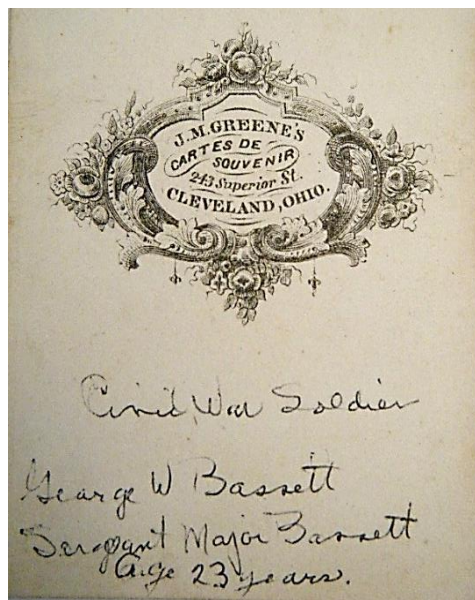 J.M.GREENE'S
CARTES DE
SOUVENIR
243 Superior St.
CLEVELAND, OHIO.
Civil War Soldier
George W Bassett
Sergeant Major Bassett
Age 23 years.